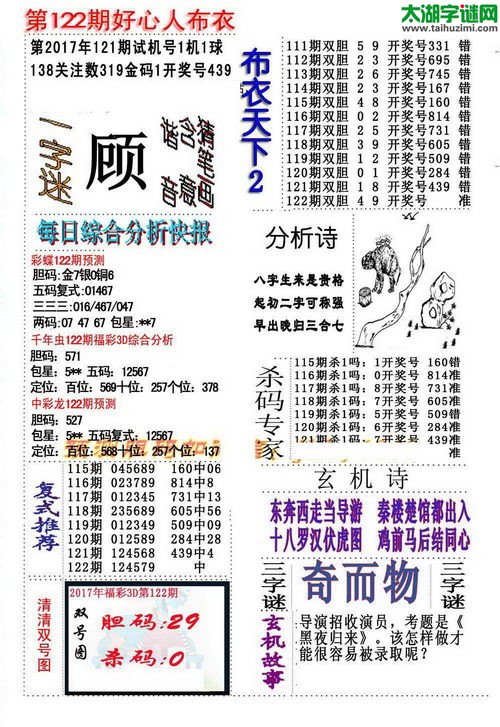 第122期好心人布衣
太湖字谜网
www.taihuzimi.com
第2017年121期试机号1机1球
138关注数319金码1开奖号439
一字迷
顾
猜含猪
音意笔画
每日综合分析快报
彩蝶122期预测
胆码:金7银0铜6
五码复式:01467
三三三:016/467/047
两码:07 47 67 包星:**7
千年虫122期福彩3D综合分析
胆码: 571
包星: 5** 五码: 12567
定位: 百位: 569十位: 257个位: 378
中彩龙122期预测
胆码: 527
包星: 5** 五码复式: 12567
定位: 百位: 568十位: 257个位: 137
复式推荐
115期 045689 160中06
116期 023789 814中8
117期 012345 731中13
118期 235689 605中56
119期 012349 509中09
120期 012589 284中28
121期 124568 439中4
122期 124579 中
清清双号图
2017年福彩3D第122期
双号图
胆码:29
杀码:0
布衣天下2
111期双胆 5 9 开奖号331 错
112期双胆 2 3 开奖号695 错
113期双胆 2 6 开奖号745 错
114期双胆 2 3 开奖号167 错
115期双胆 4 8 开奖号160 错
116期双胆 0 2 开奖号814 错
117期双胆 2 5 开奖号731 错
118期双胆 3 9 开奖号605 错
119期双胆 1 2 开奖号509 错
120期双胆 0 1 开奖号284 错
121期双胆 1 8 开奖号439 错
122期双胆 4 9 开奖号 准
分析诗
八字生来是贵格
起初二字可称强
早出晚归三合七
杀码专家
115期杀1吗: 1开奖号 160错
116期杀1码: 0开奖号 814准
117期杀1码: 8开奖号 731准
118期杀1码: 7开奖号 605准
119期杀1码: 5开奖号 509错
120期杀1码: 4开奖号 284错
121期杀1码: 7开奖号 439准
准
玄机诗
东奔西走当导游 秦楼楚馆都出入
十八罗汉伏虎图 鸡前马后结同心
三字谜
奇而物
三字谜
玄机故事
导演招收演员，考题是《
黑夜归来》。该怎样做才
能很容易被录取呢？